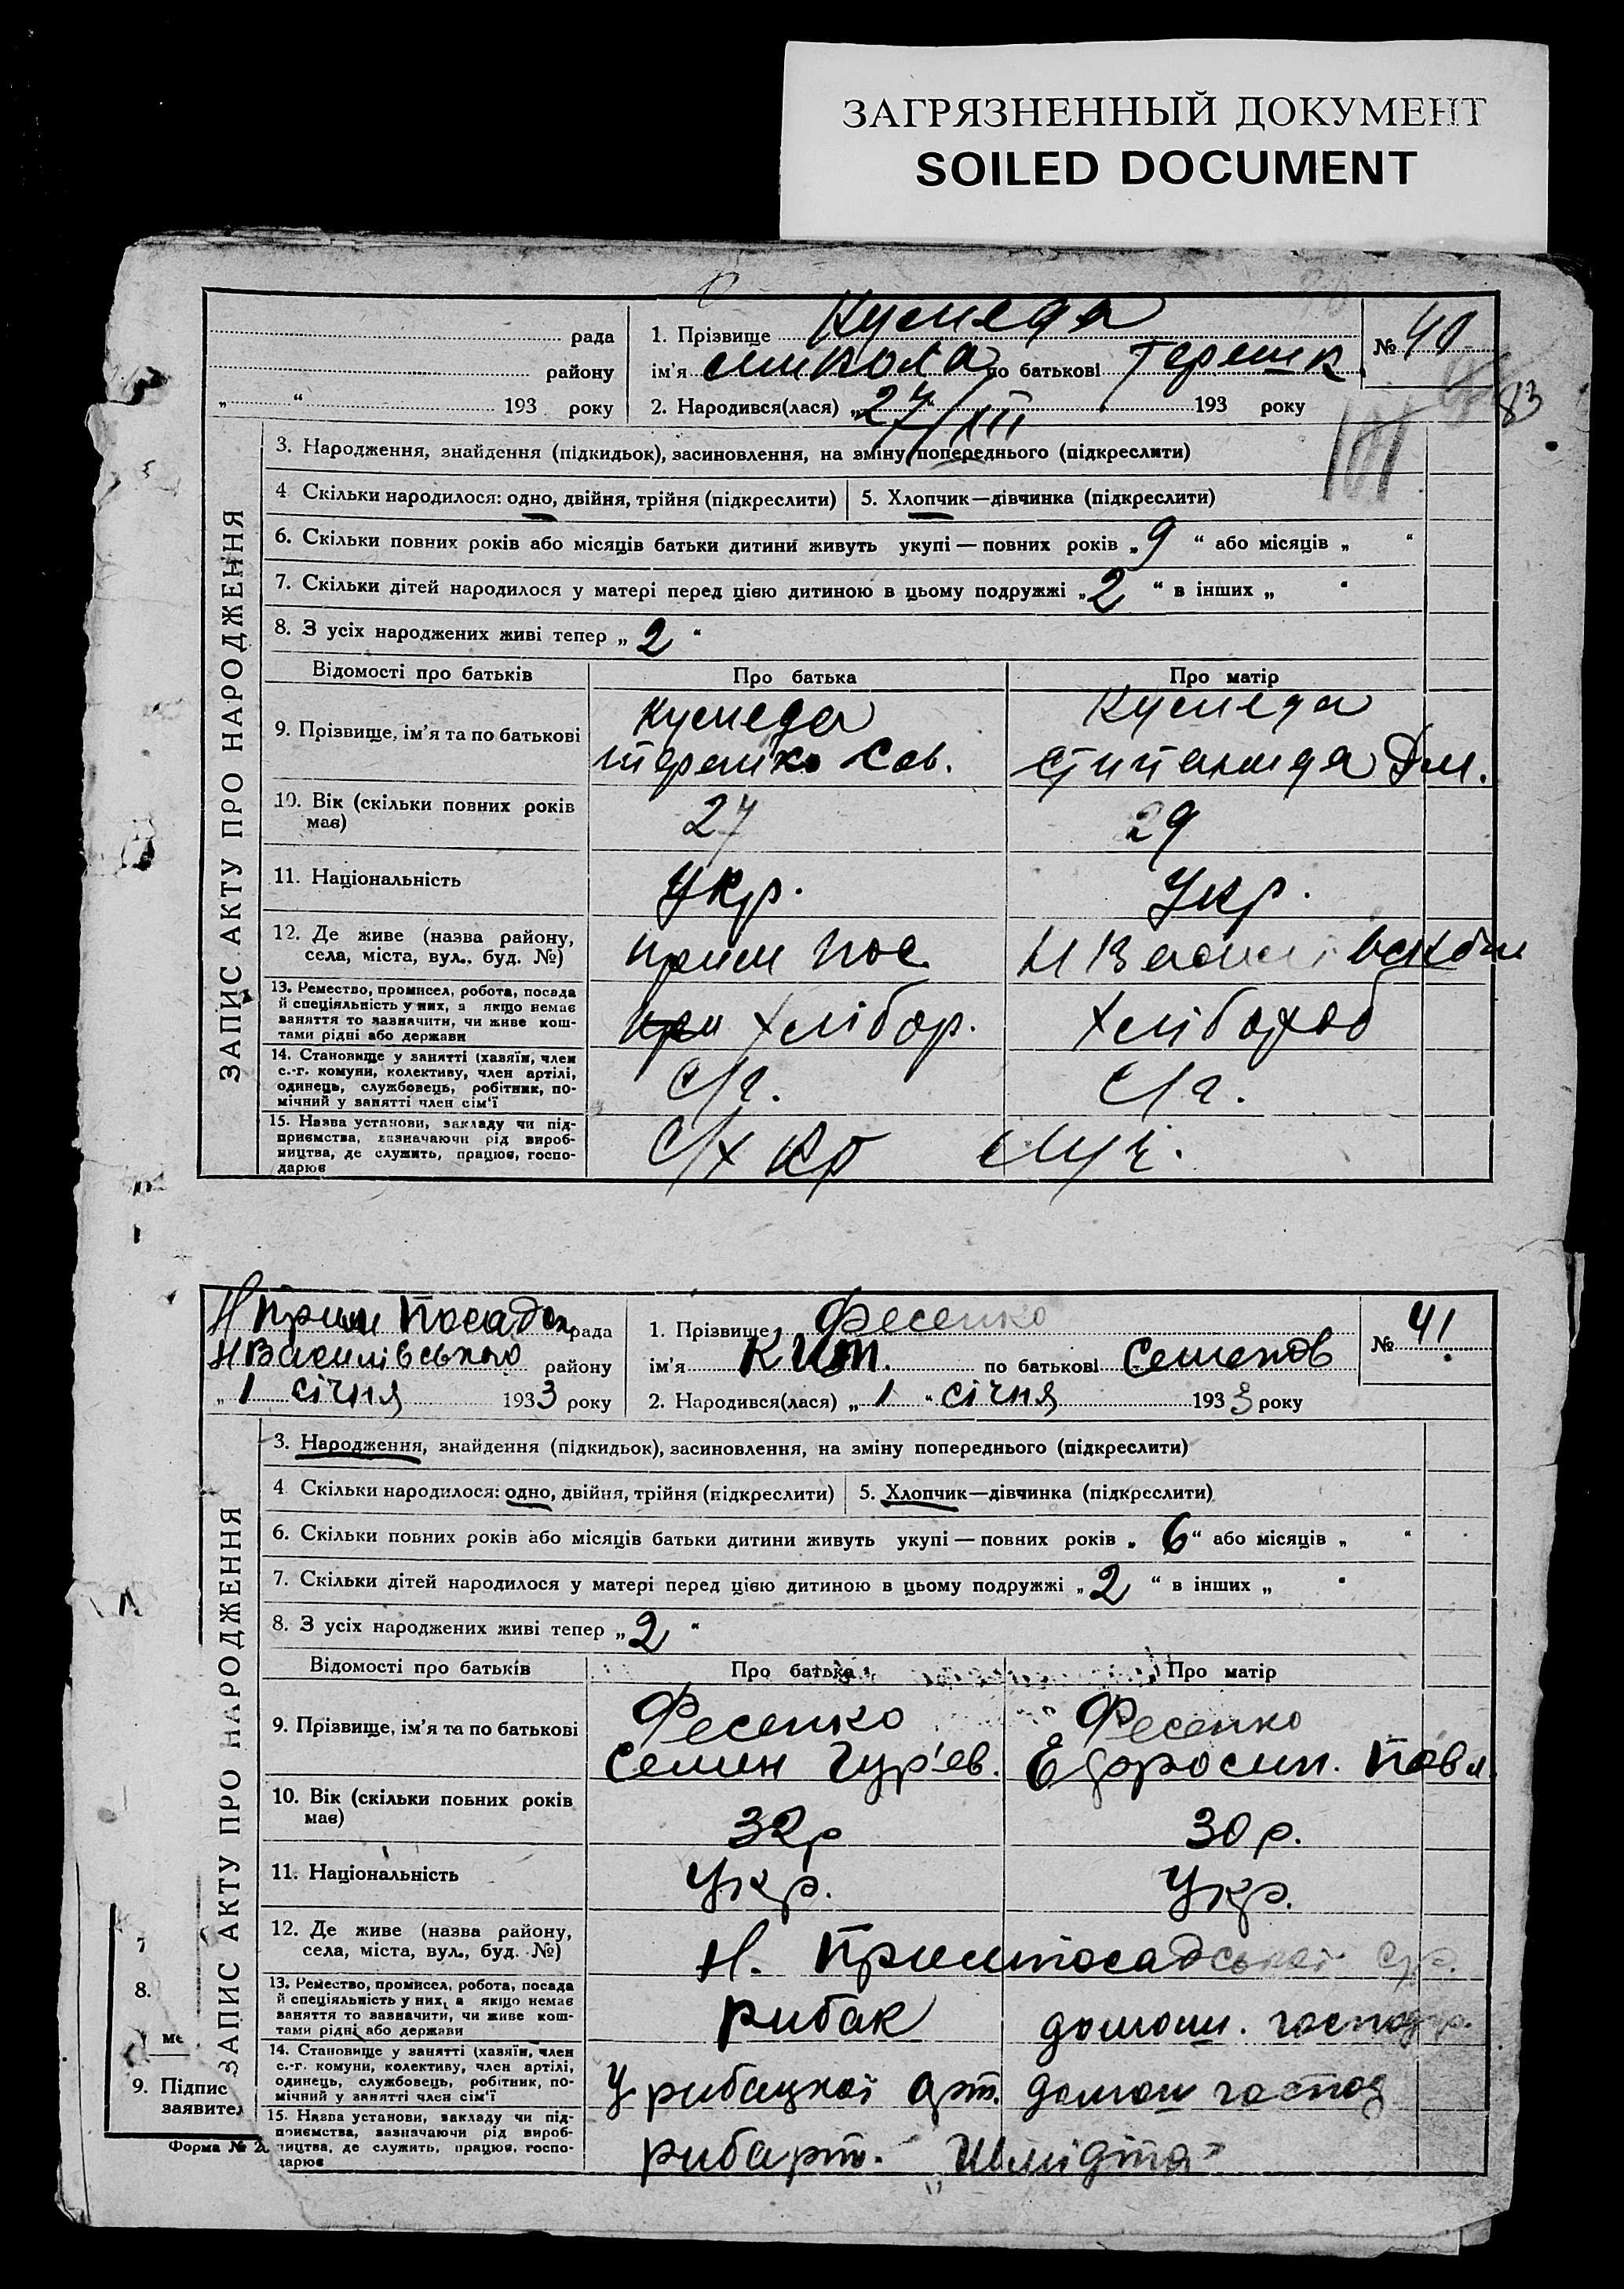 ЗАГРЯЗНЕННЫЙ ДОКУМЕНТ
SOILED DOCUMENT
рада
району
„ “ 193 року
1. Прізвище Кумеда
ім'я Микола по батькові Терешк.
2. Народився(лася) „27/XII 193 року
№ 40
83
101
ЗАПИС АКТУ ПРО НАРОДЖЕННЯ
3. Народження, знайдення (підкидьок), засиновлення, на зміну попереднього (підкреслити)
4 Скільки народилося: одно, двійня, трійня (підкреслити) 5. Хлопчик—дівчинка (підкреслити)
6. Скільки повних років або місяців батьки дитини живуть укупі — повних років „9“ або місяців „ “
7. Скільки дітей народилося у матері перед цією дитиною в цьому подружжі „2“ в інших „ “
8. З усіх народжених живі тепер „2“
Відомості про батьків Про батька Про матір
9. Прізвище, ім'я та по батькові
Кумеда
Терешко Сав.
Кумеда
Степанида Дм.
10. Вік (скільки повних років
має)
27 29
11. Національність Укр. Укр.
12. Де живе (назва району,
села, міста, вул., буд. №)
Прим Пос.
13. Ремество, промисел, робота, посада
й спеціяльність у них, а якщо немає
заняття то зазначити, чи живе кош-
тами рідні або держави
при хлібор. хлібороб
14. Становище у занятті (хазяїн, член
с.-г. комуни, колективу, член артілі,
одинець, службовець, робітник, по-
мічний у занятті член сім'ї
15. Назва установи, закладу чи під-
приємства, зазначаючи рід вироб-
ництва, де служить, працює, госпо-
дарює
Н Прим Посадск рада
НВасилівського району
„1 січня 1933 року
1. Прізвище Фесенко
ім'я Кит. по батькові Семенов
2. Народився(лася) „1“ січня 1933 року
№ 41
ЗАПИС АКТУ ПРО НАРОДЖЕННЯ
3. Народження, знайдення (підкидьок), засиновлення, на зміну попереднього (підкреслити)
4 Скільки народилося: одно, двійня, трійня (підкреслити) 5. Хлопчик—дівчинка (підкреслити)
6. Скільки повних років або місяців батьки дитини живуть укупі — повних років „6“ або місяців „ “
7. Скільки дітей народилося у матері перед цією дитиною в цьому подружжі „2“ в інших „ “
8. З усіх народжених живі тепер „2“
Відомості про батьків Про батька Про матір
9. Прізвище, ім'я та по батькові
Фесенко
Семен Гур'ев.
Фесенко
Ефросин. Павл.
10. Вік (скільки повних років
має)
32р 30р.
11. Національність Укр. Укр.
12. Де живе (назва району,
села, міста, вул., буд. №)
Н. Примпосадської с/р.
13. Ремество, промисел, робота, посада
й спеціяльність у них, а якщо немає
заняття то зазначити, чи живе кош-
тами рідні або держави
рибак домаш. господар.
14. Становище у занятті (хазяїн, член
с.-г. комуни, колективу, член артілі,
одинець, службовець, робітник, по-
мічний у занятті член сім'ї
У рибацкої арт. домаш господ
15. Назва установи, закладу чи під-
приємства, зазначаючи рід вироб-
ництва, де служить, працює, госпо-
дарює
рибарт. „Шмідта“
7
8.
ме
9. Підпис
заявител
Форма № 2